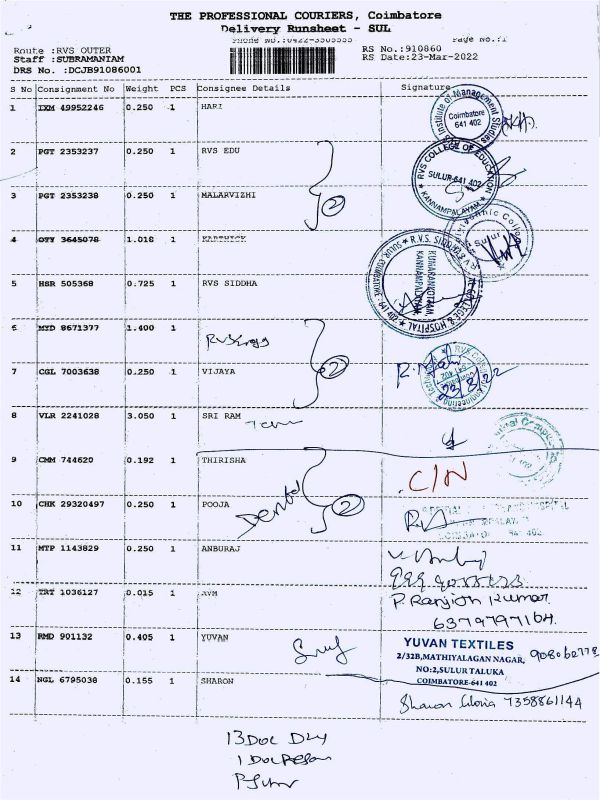 THE PROFESSIONAL COURIERS, Coimbatore
Delivery Runsheet - SUL
Phone No.:0422-3303333 Page No.:1
Route :RVS OUTER RS No.:910860
Staff :SUBRAMANIAM RS Date:23-Mar-2022
DRS No. :DCJB91086001
S No Consignment No Weight PCS Consignee Details Signature
1 IXM 49952246 0.250 1 HARI
Institute of Management Studies Coimbatore 641 402
2 PGT 2353237 0.250 1 RVS EDU
RVS COLLEGE OF EDUCATION SULUR-641 402 KANNAMPALAYAM
3 PGT 2353238 0.250 1 MALARVIZHI
2
Sulur
4 OTY 3645078 1.018 1 KARTHICK
R.V.S. SIDDHA COLLEGE & HOSPITAL KUMARANKOTTAM KANNAMPALAYAM SULUR COIMBATORE - 641 402
5 HSR 505368 0.725 1 RVS SIDDHA
6 MYD 8671377 1.400 1
7 CGL 7003638 0.250 1 VIJAYA
2
23/3/22
8 VLR 2241028 3.050 1 SRI RAM
9 CMM 744620 0.192 1 THIRISHA
C/N
10 CHK 29320497 0.250 1 POOJA
Dental 2
11 MTP 1143829 0.250 1 ANBURAJ
12 TRT 1036127 0.015 1 AVM
P. Ranjith Kumar
6379797164
13 RMD 901132 0.405 1 YUVAN
YUVAN TEXTILES
2/32B,MATHIYALAGAN NAGAR,
NO:2,SULUR TALUKA
COIMBATORE-641 402
14 NGL 6795038 0.155 1 SHARON
Sharon Gloria 7358861144
13 Doc Dly
1 Doc